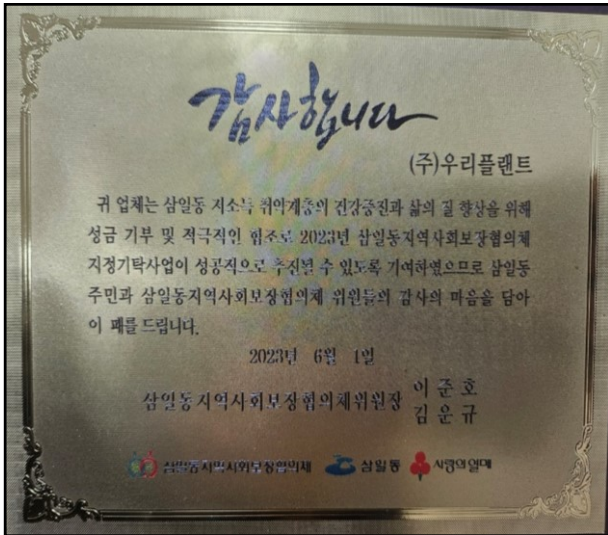 감사합니다
(주)우리플랜트
귀 업체는 삼일동 저소득 취약계층의 건강증진과 삶의 질 향상을 위해
성금 기부 및 적극적인 협조로 2023년 삼일동지역사회보장협의체
지정기탁사업이 성공적으로 추진될 수 있도록 기여하였으므로 삼일동
주민과 삼일동지역사회보장협의체 위원들의 감사의 마음을 담아
이 패를 드립니다.
2023년 6월 1일
삼일동지역사회보장협의체위원장 이준호
김운규
삼일동지역사회보장협의체 삼일동 사랑의열매